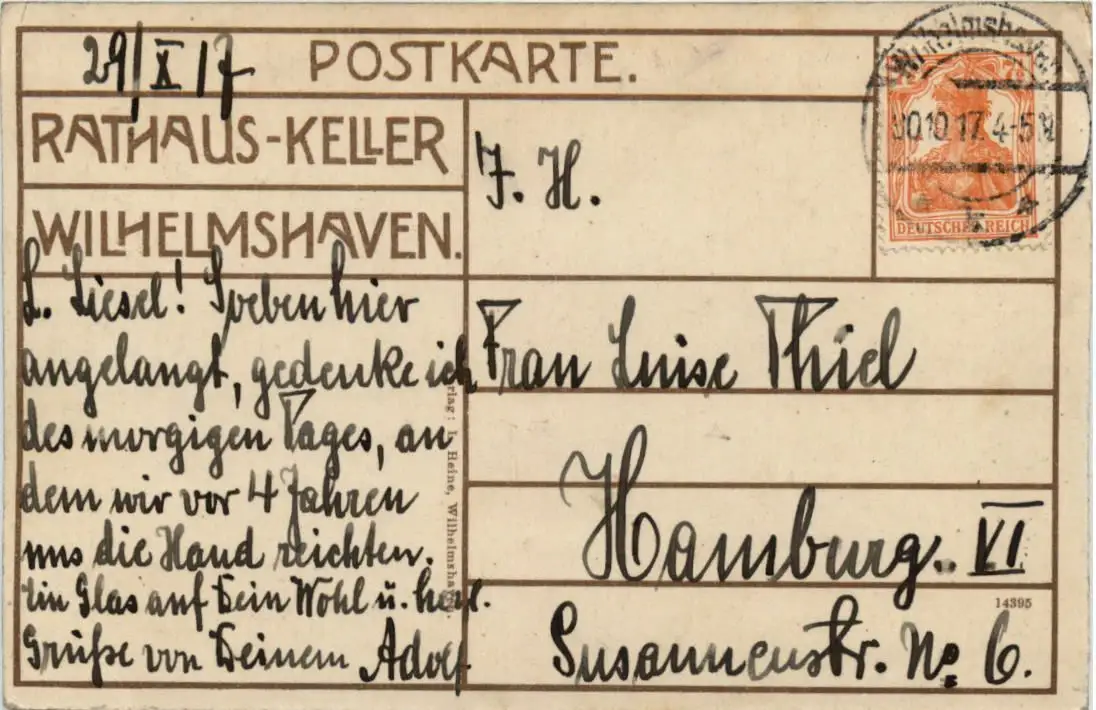 29/X 17
POSTKARTE.
RATHAUS-KELLER
WILHELMSHAVEN.
L. Liesel! Soeben hier
angelangt, gedenke ich
des morgigen Tages, an
dem wir vor 4 Jahren
uns die Hand reichten.
Ein Glas auf Dein Wohl u. herzl.
Grüße von Deinem Adolf
rlag: L. Heine, Wilhelmsha
F. H.
Frau Luise Thiel
Hamburg. VI
14395
Susannenstr. No 6.
Wilhelmshaven
30.10.17. 4-5 N
* k *
7½
DEUTSCHES REICH